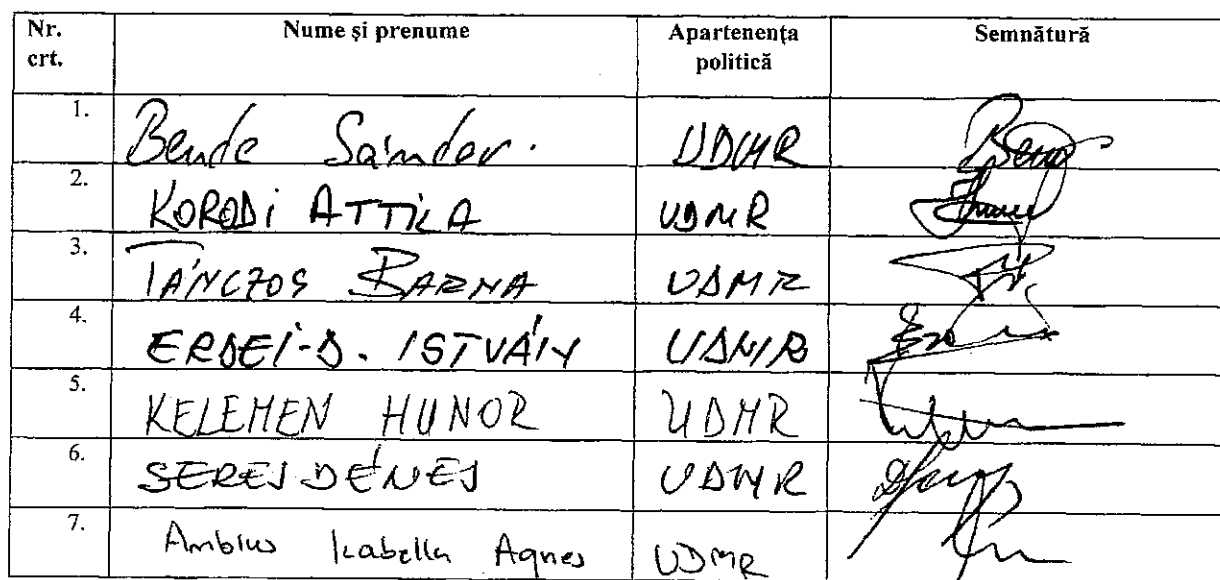 Nr. crt. Nume și prenume Apartenența politică Semnătură
1. Bende Sándor. UDMR
2. KORODI ATTILA UDMR
3. TÁNCZOS BARNA UDMR
4. ERDEI-D. ISTVÁN UDMR
5. KELEMEN HUNOR UDMR
6. SERES DÉNES UDMR
7. Ambrus Izabella Agnes UDMR